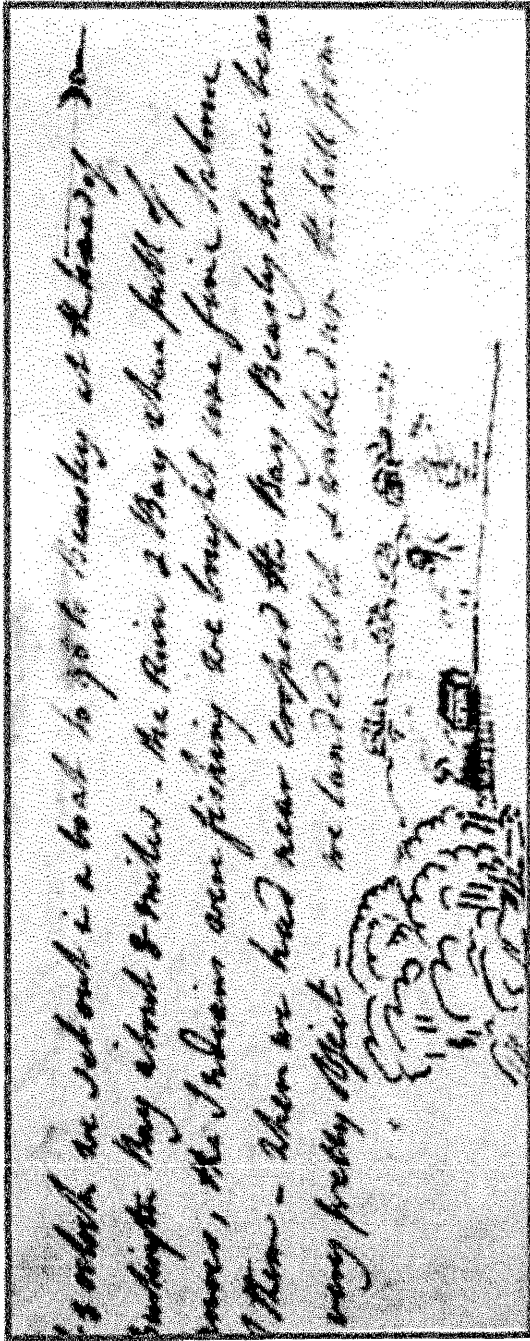 8 oclock we set out in a boat to go to Beasley at the head of
Burlington Bay about 8 miles - the River & Bay where full of
canoes, the Indians were fishing we bought some fine Salmon
of them - When we had near cross'd the Bay Beasley house became
very pretty object - we landed at it & walked up the hill from